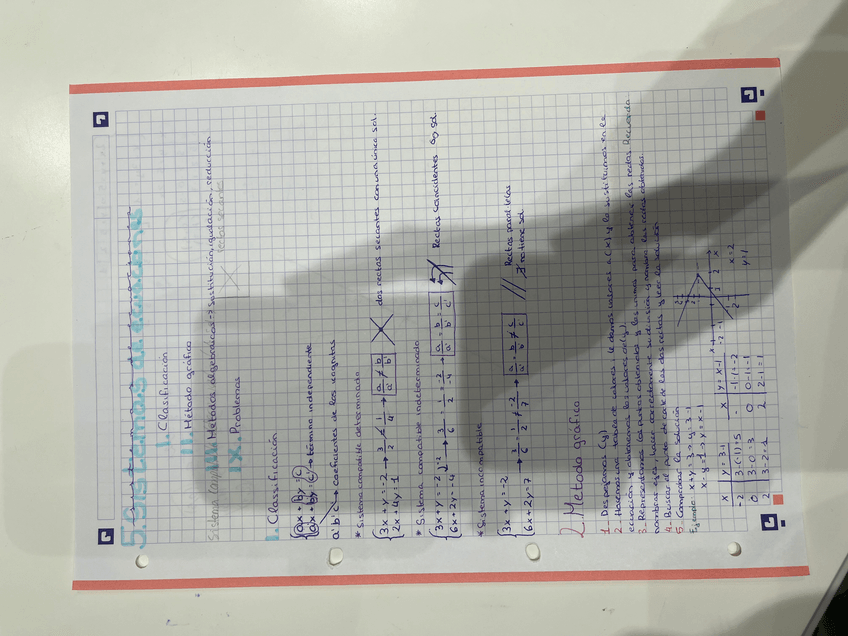 5. Sistemas de ecuaciones
I. Classificación
II. Método gráfico
III. Métodos algebraicos → sustitución, igualación, reducción
IX. Problemas
rectas secantes
1. Classificación
{ax + by = c
{a'x + b'y = c' → término independiente
a' b' c' → coeficientes de las incógnitas
* Sistema compatible determinado
{3x + y = -2 → 3/2 ≠ 1/4 → a/a' ≠ b/b' dos rectas secantes con una única sol.
{2x + 4y = 1
* Sistema compatible indeterminado
{3x + y = -2 → 3/6 = 1/2 = -2/-4 → a/a' = b/b' = c/c' Rectas coincidentes ∞ sol
{6x + 2y = -4
* Sistema incompatible
{3x + y = -2 → 3/6 = 1/2 ≠ -2/7 → a/a' = b/b' ≠ c/c' // Rectas paralelas
{6x + 2y = 7 ∄ no tiene sol.
2. Método gráfico
1. Despejamos (y)
2. Hacemos una tabla de valores le damos valores a (x) y la sustituimos en la
ecuación y obtenemos los valores en (y).
3. Representamos los puntos obtenidos y los unimos para obtener las rectas. Recuerda
nombrar ejes, hacer correctamente su división, y nombra las rectas obtenidas.
4. Buscar el punto de corte de las dos rectas y leer la solución
5. Comprobar la solución
x + y = 3 → y = 3 - 1
x - y = 1 → y = x - 1
x | y = 3 - 1
-2 | 3 - (-2) = 5
0 | 3 - 0 = 3
2 | 3 - 2 = 1
x | y = x - 1
0 | 0 - 1 = -1
2 | 2 - 1 = 1
x = 2
y = 1